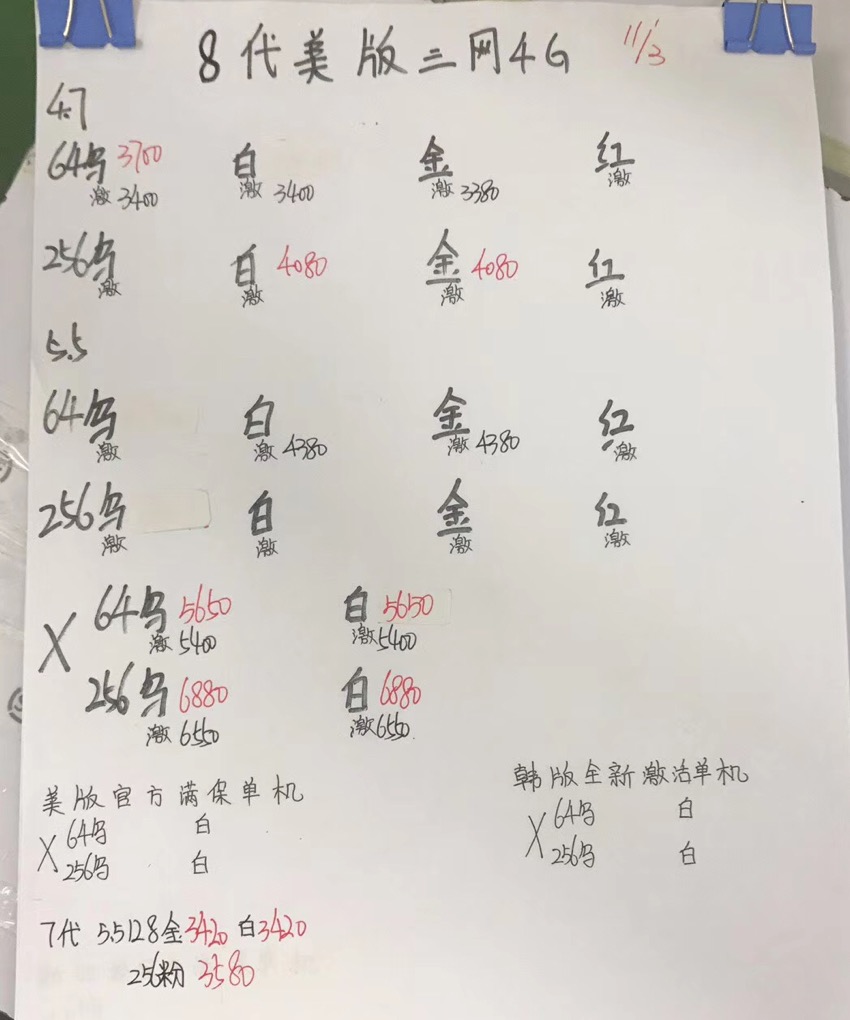 8代美版三网4G 11/3
4.7
64乌 3700 白 金 红
激 3400 激 3400 激 3380 激
256乌 白 4080 金 4080 红
激 激 激 激
5.5
64乌 白 金 红
激 激 4380 激 4380 激
256乌 白 金 红
激 激 激 激
X 64乌 5650 白 5650
激 5400 激 5400
256乌 6880 白 6880
激 6550 激 6550
美版官方满保单机
X 64乌 白
256乌 白
韩版全新激活单机
X 64乌 白
256乌 白
7代 5.5128金3420 白3420
256粉 3580